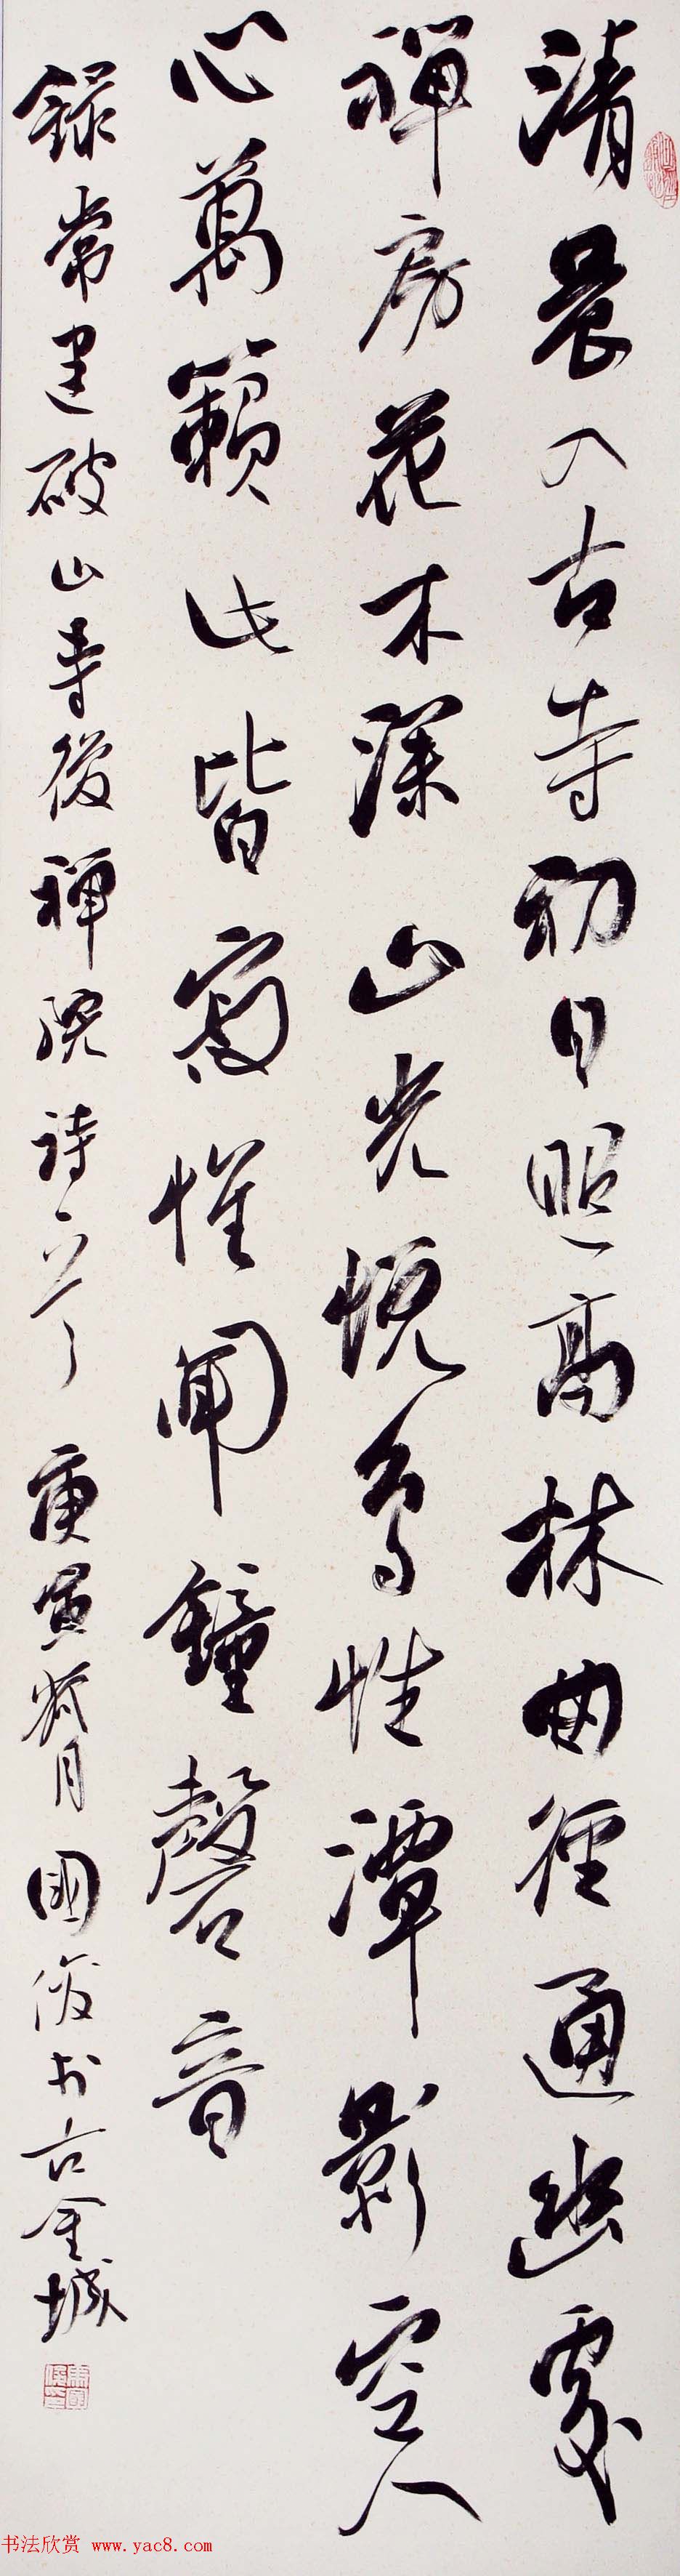 清晨入古寺初日照高林曲徑通幽處
禪房花木深山光悅鳥性潭影空人
心萬籟此皆寂惟聞鐘磬音
錄常建破山寺後禪院詩一首 庚寅月 國俊於古金城
书法欣赏 www.yac8.com